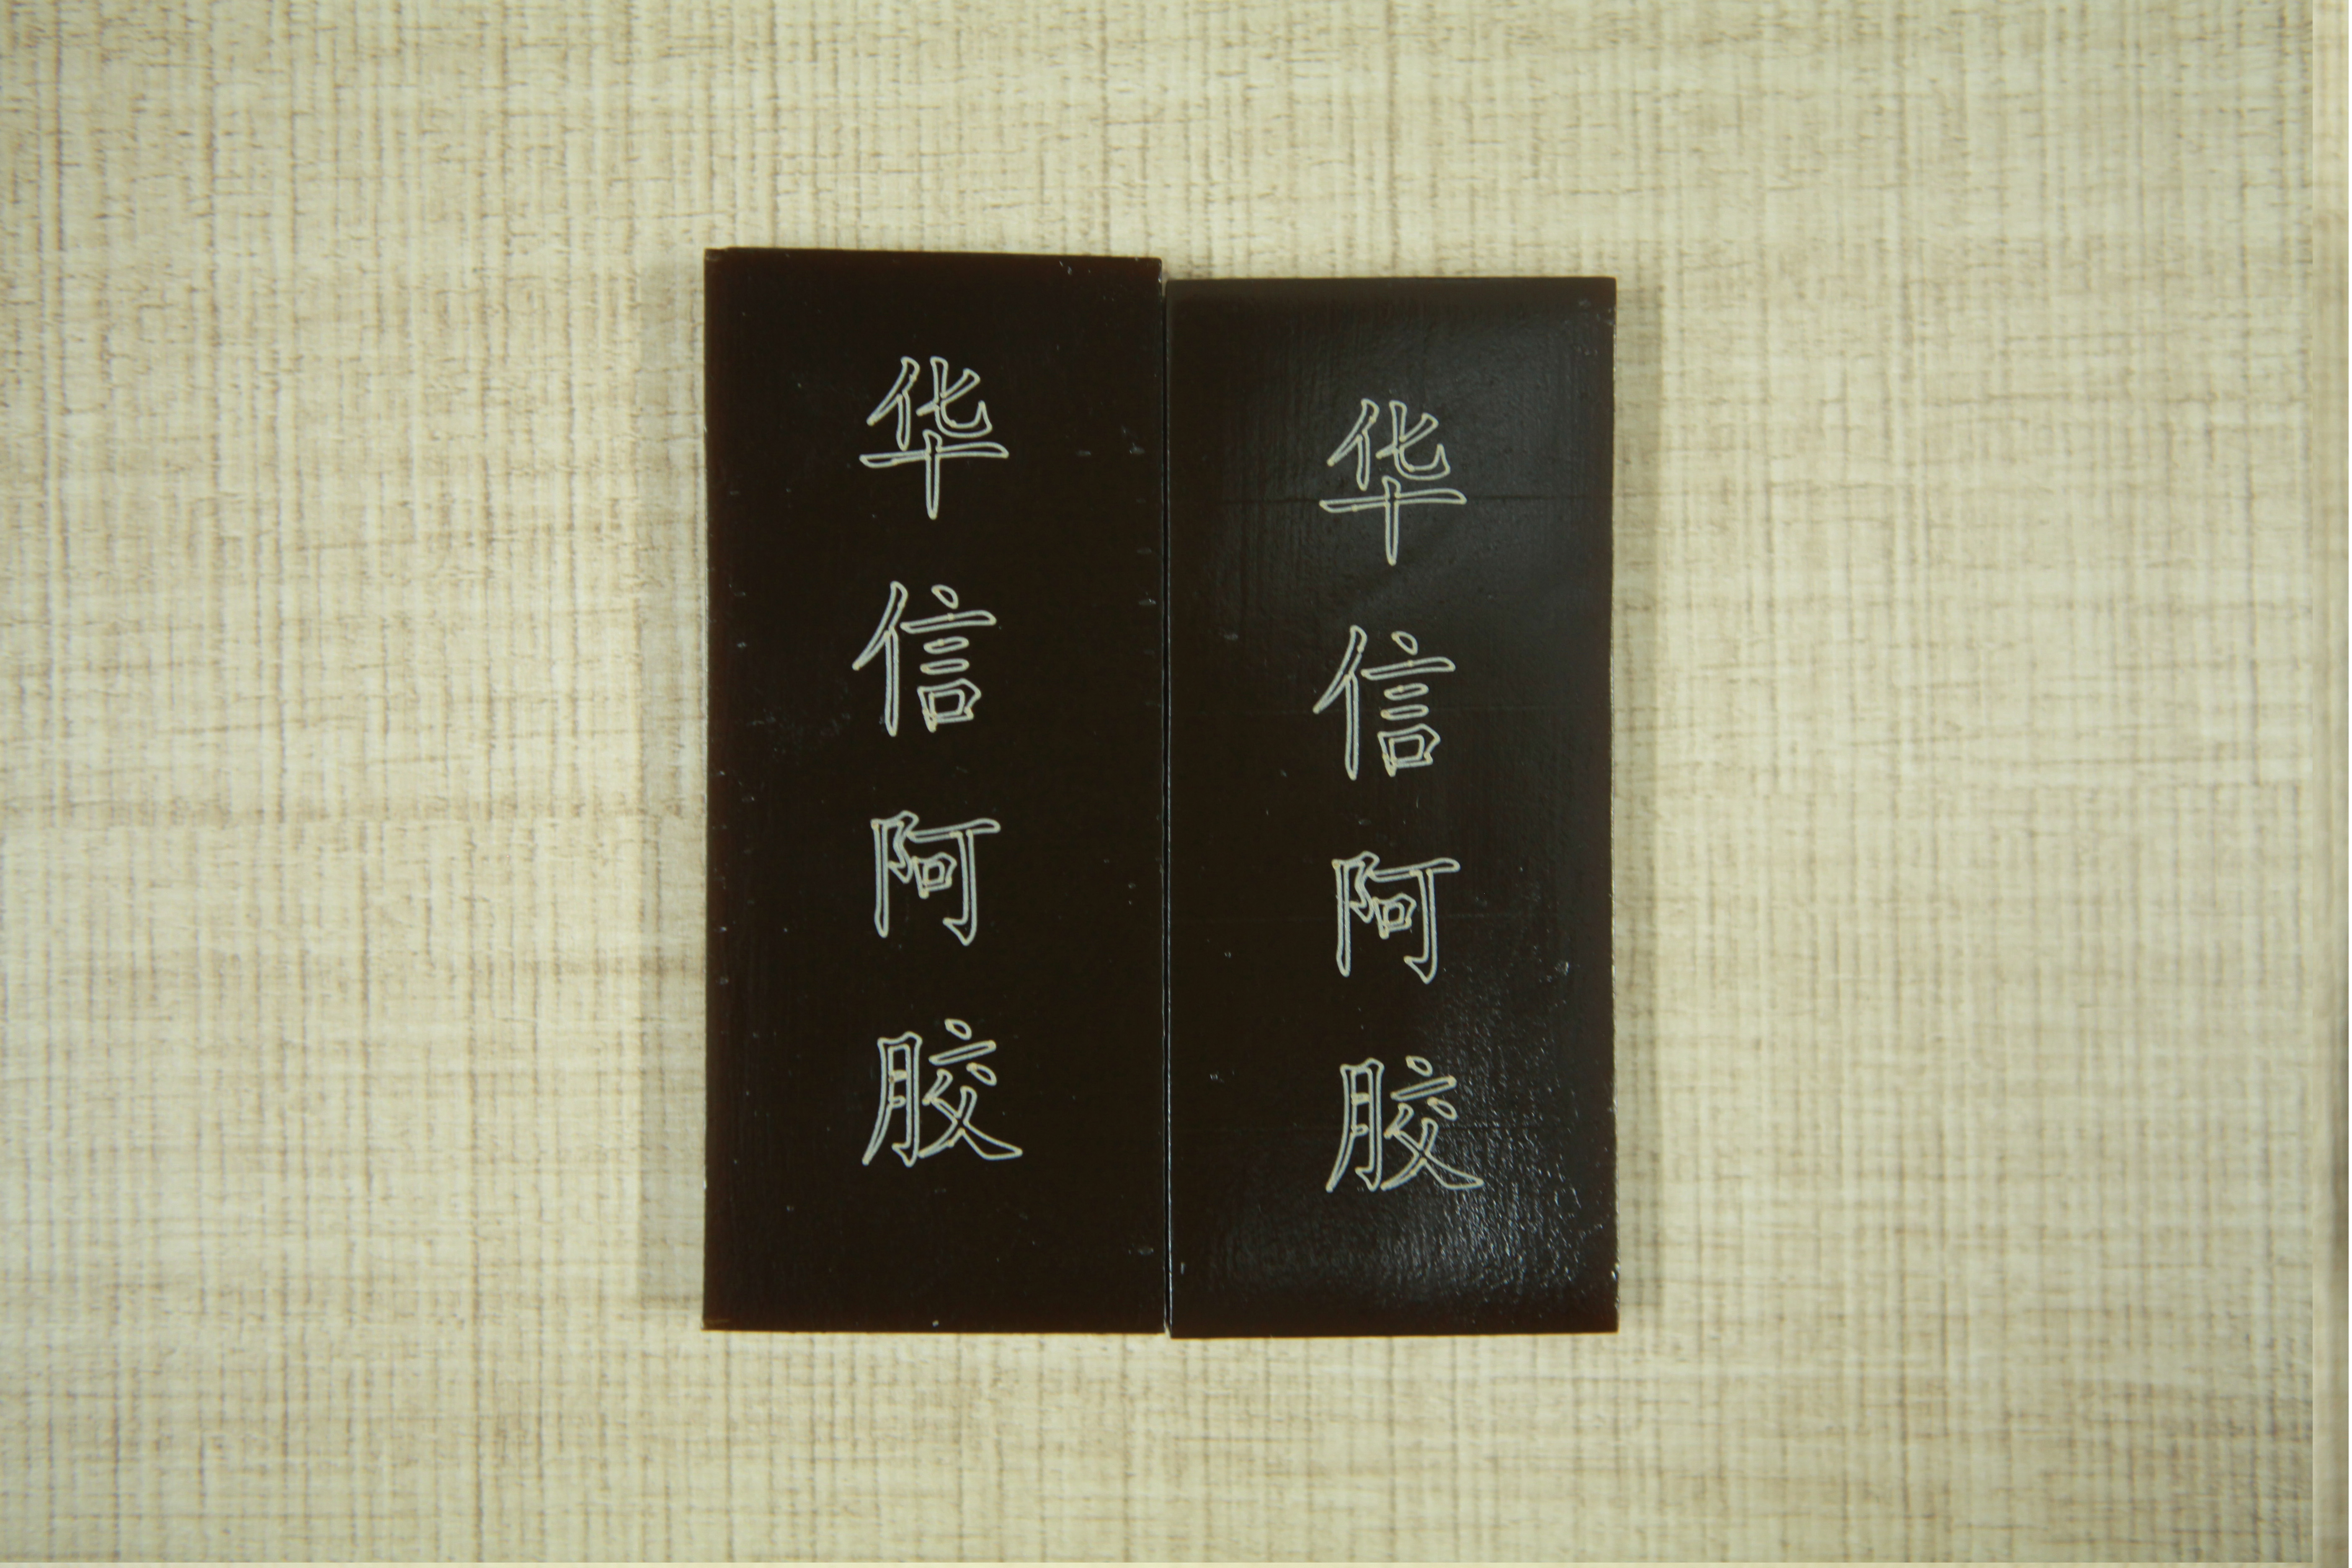 华信阿胶
华信阿胶